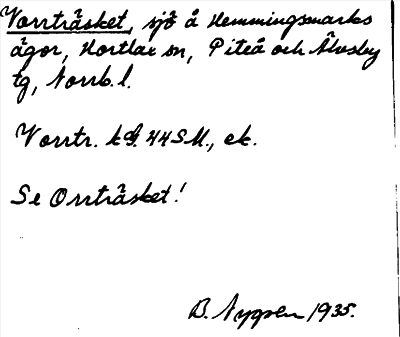 Vorrträsket, sjö å Hemmingsmarks
ägor, Hortlax sn, Piteå och Älvsby
tg, Norrb. l.
Vorrtr. 44 S.M., ek.
Se Orrträsket!
B. Nygren 1935.